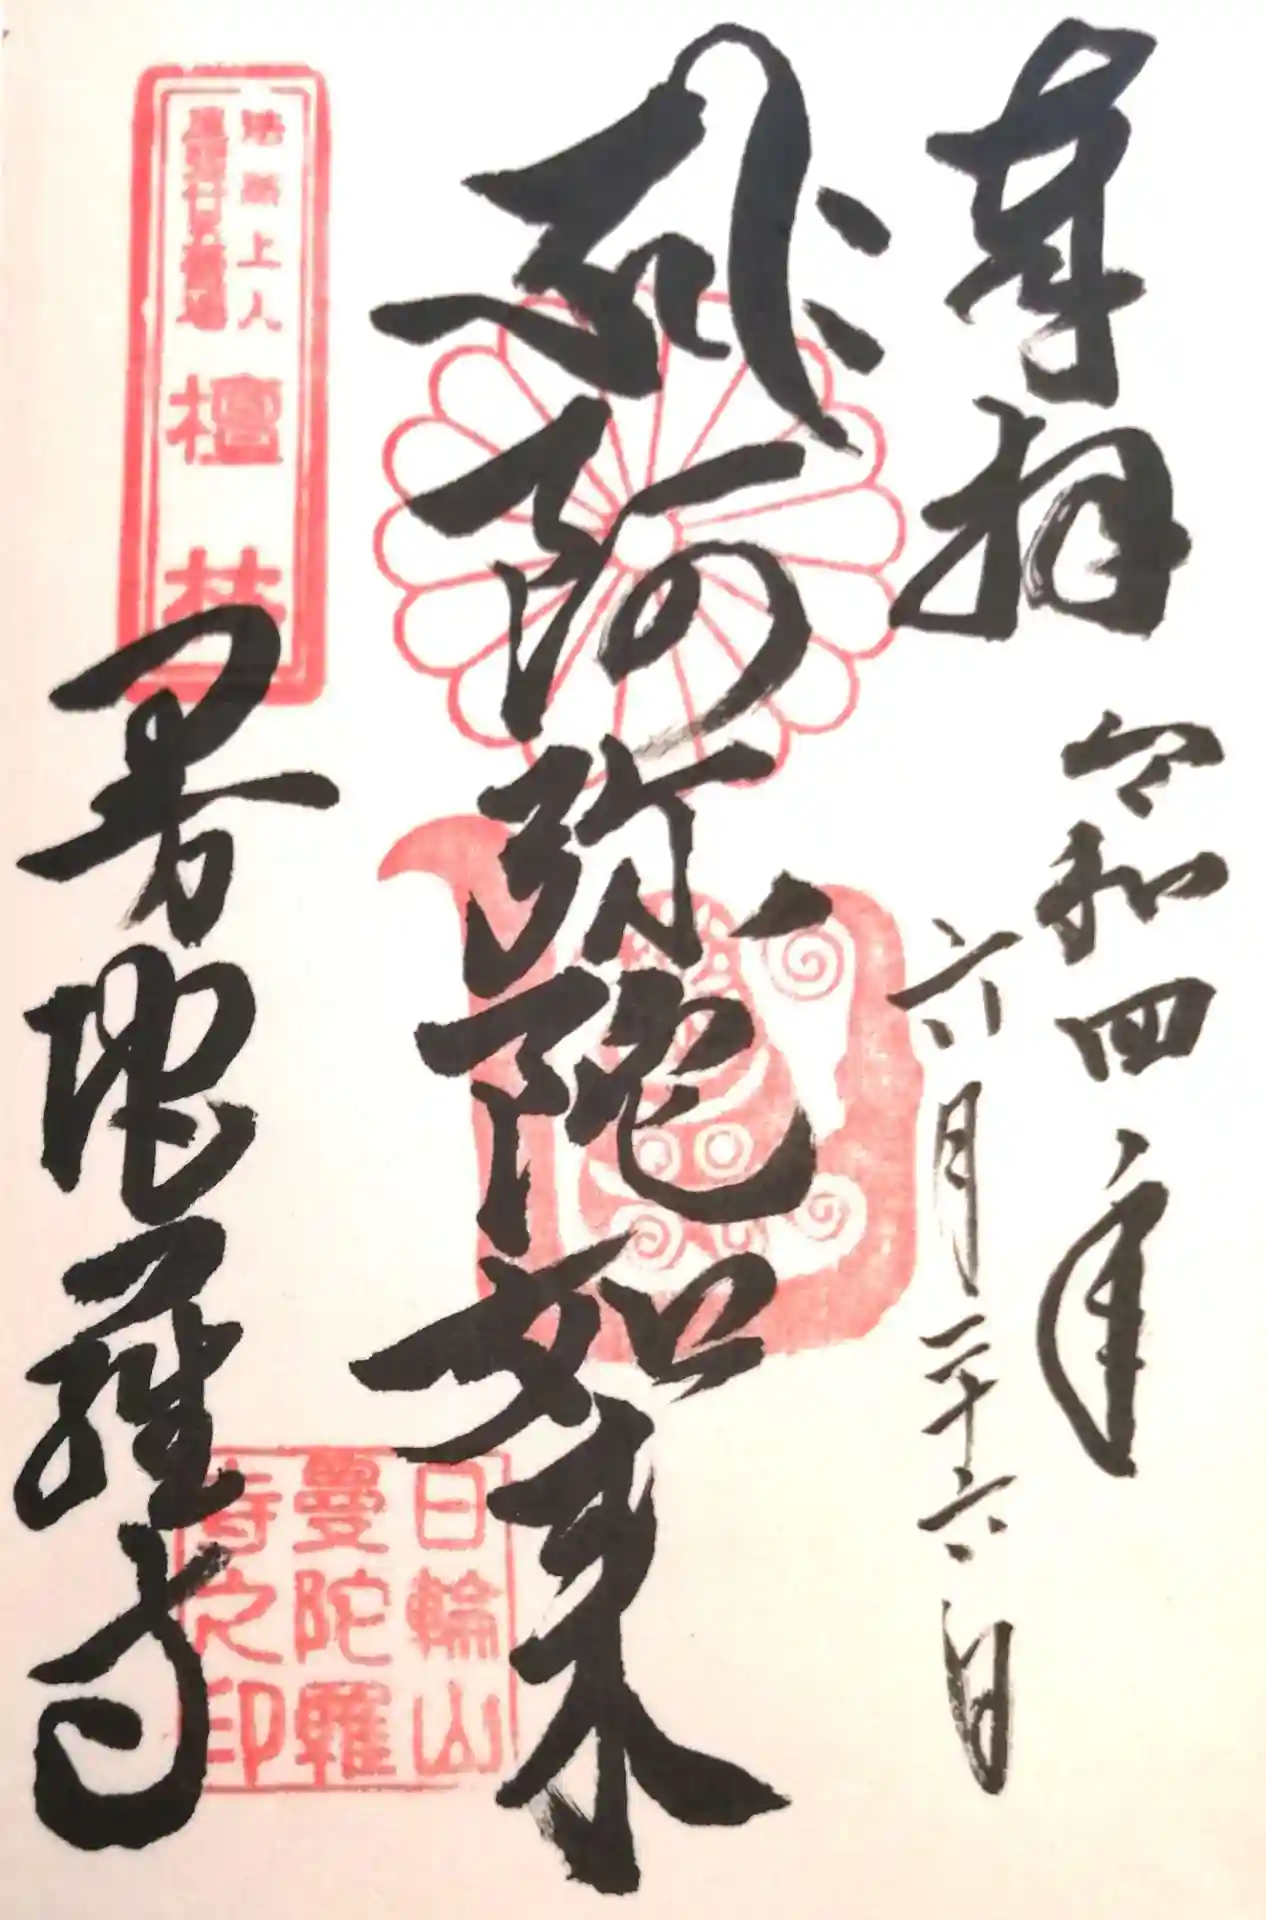 奉拝
令和四年
六月二十六日
𑖮𑖿𑖨𑖱𑖾
阿弥陀如来
曼陀羅寺
法然上人
霊場
檀林
日輪山
曼陀羅
寺之印